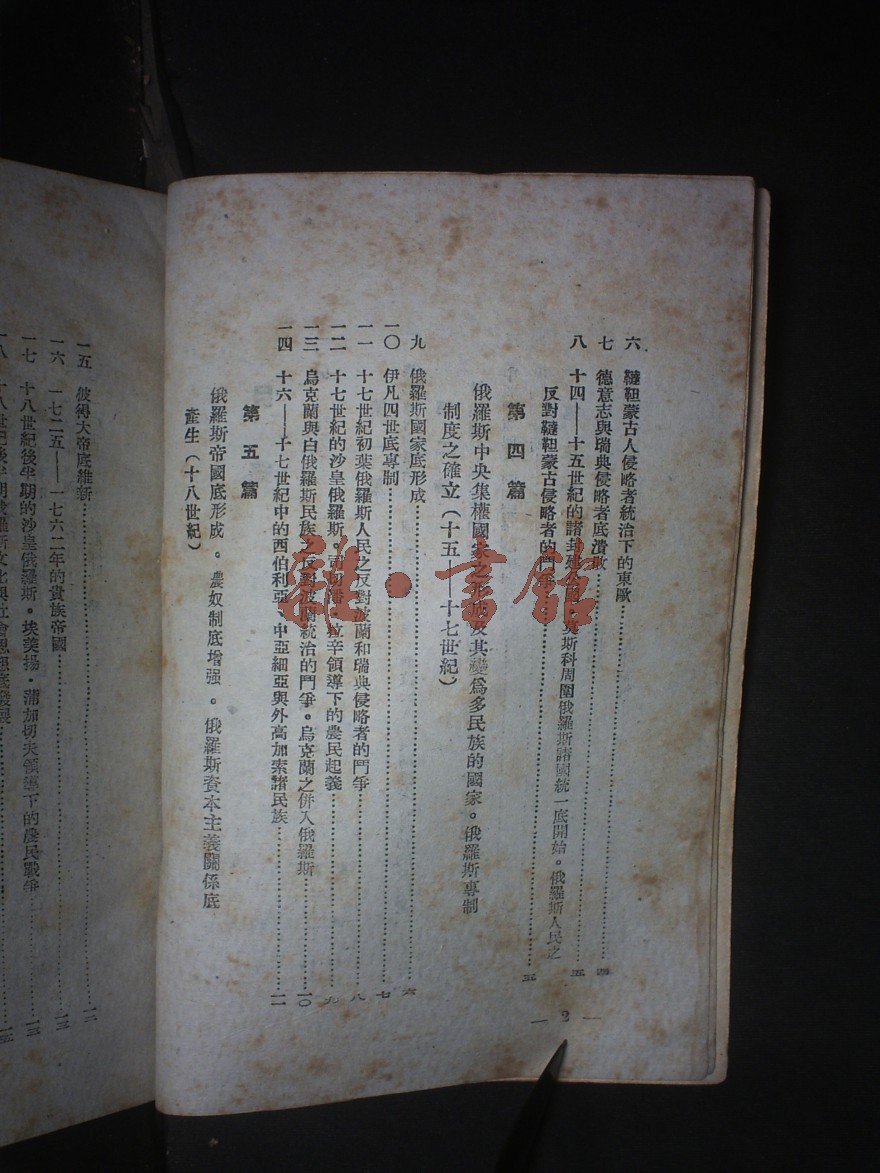 六 韃靼蒙古人侵略者統治下的東歐
七 德意志與瑞典侵略者底潰敗
八 十四——十五世紀的諸封建公國。莫斯科周圍俄羅斯諸國統一底開始。俄羅斯人民之 五
反對韃靼蒙古侵略者的鬥爭 五
第四篇
俄羅斯中央集權國家之形成及其變爲多民族的國家。俄羅斯專制
制度之確立(十五——十七世紀)
九 俄羅斯國家底形成 六
一〇 伊凡四世底專制 七
一一 十七世紀初葉俄羅斯人民之反對波蘭和瑞典侵略者的鬥爭 八
一二 十七世紀的沙皇俄羅斯。司切潘·拉辛領導下的農民起義 九
一三 烏克蘭與白俄羅斯民族之反對波蘭統治的鬥爭。烏克蘭之併入俄羅斯 一〇
一四 十六——十七世紀中的西伯利亞,中亞細亞與外高加索諸民族 一一
第五篇
俄羅斯帝國底形成。農奴制底增强。俄羅斯資本主義關係底
產生(十八世紀)
— 2 —
一五 彼得大帝底維新 一二
一六 一七二五——一七六二年的貴族帝國 一三
一七 十八世紀後半期的沙皇俄羅斯。埃美揚·蒲加切夫領導下的農民戰爭 一三
一八 十八世紀後半期俄羅斯文化與社會思想底發展
雅·書館